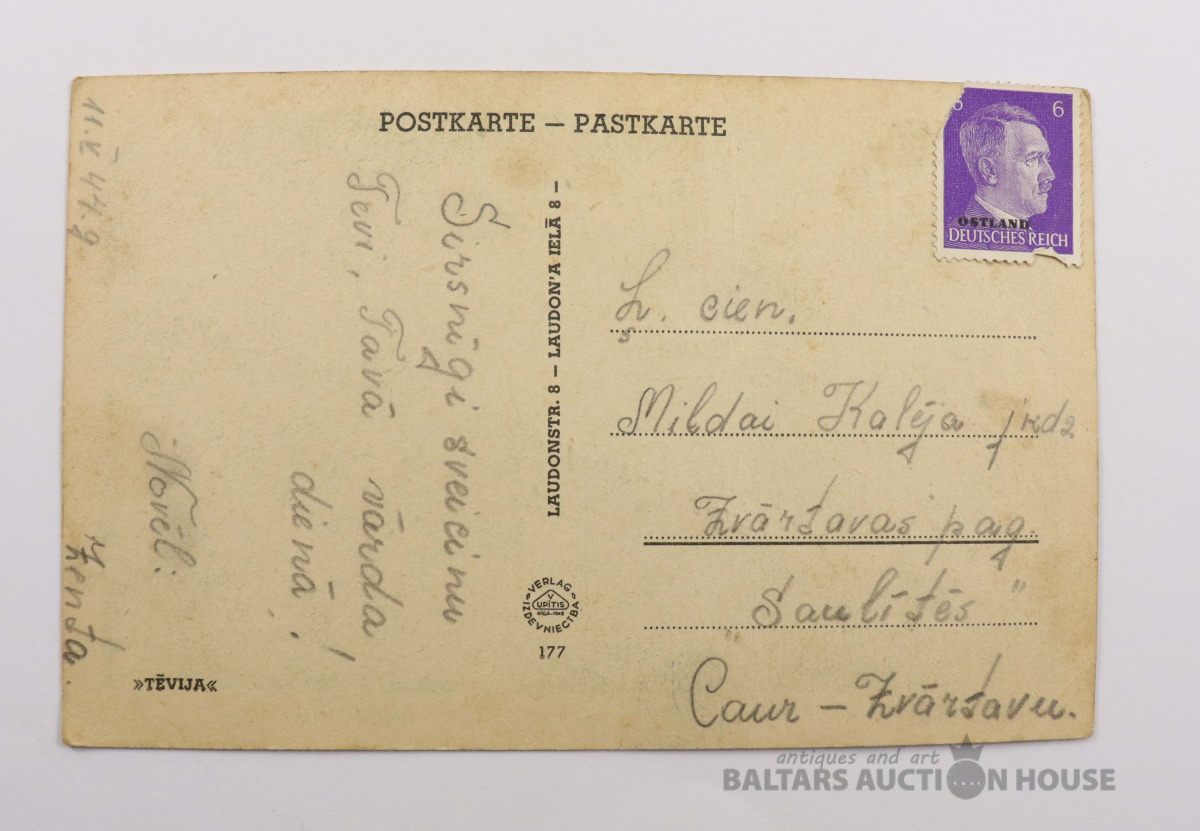 POSTKARTE — PASTKARTE
11. V 44. g
Sirsnīgi sveicinu
Tevi, Tavā vārda
dienā!
Novēl:
Zenta.
»TĒVIJA«
LAUDONSTR. 8 — LAUDON'A IELĀ 8 —
VERLAG
V
UPĪTIS
IZDEVNIECĪBA
177
6
6
OSTLAND
DEUTSCHES REICH
L. cien.
Mildai Kalēja
Zvārtavas pag.
"Saulītēs"
Caur — Zvārtavu.
antiques and art
BALTARS AUCTION HOUSE